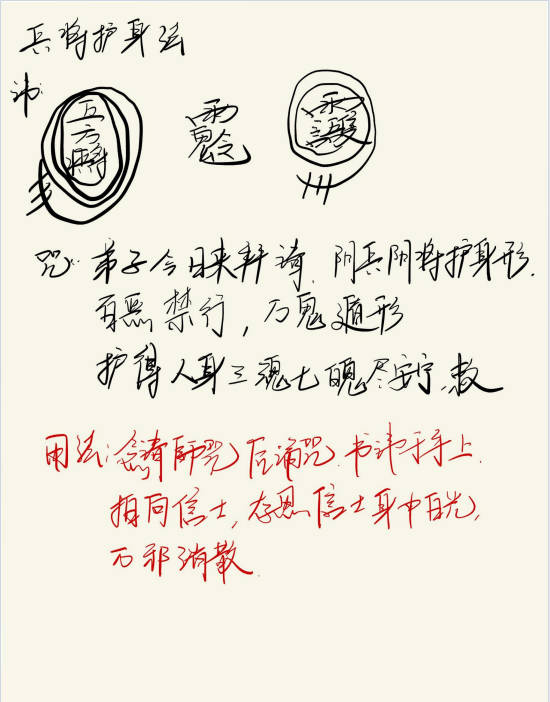 兵将护身法
讳:
五方兵将
咒: 弟子今日来拜请,阴兵阴将护身形.
百恶禁行,万鬼遁形
护得人身三魂七魄尽安宁.敕
用法:念请師咒后诵咒.书讳于手上.
指向信士,存思信士身中白光,
万邪消散.